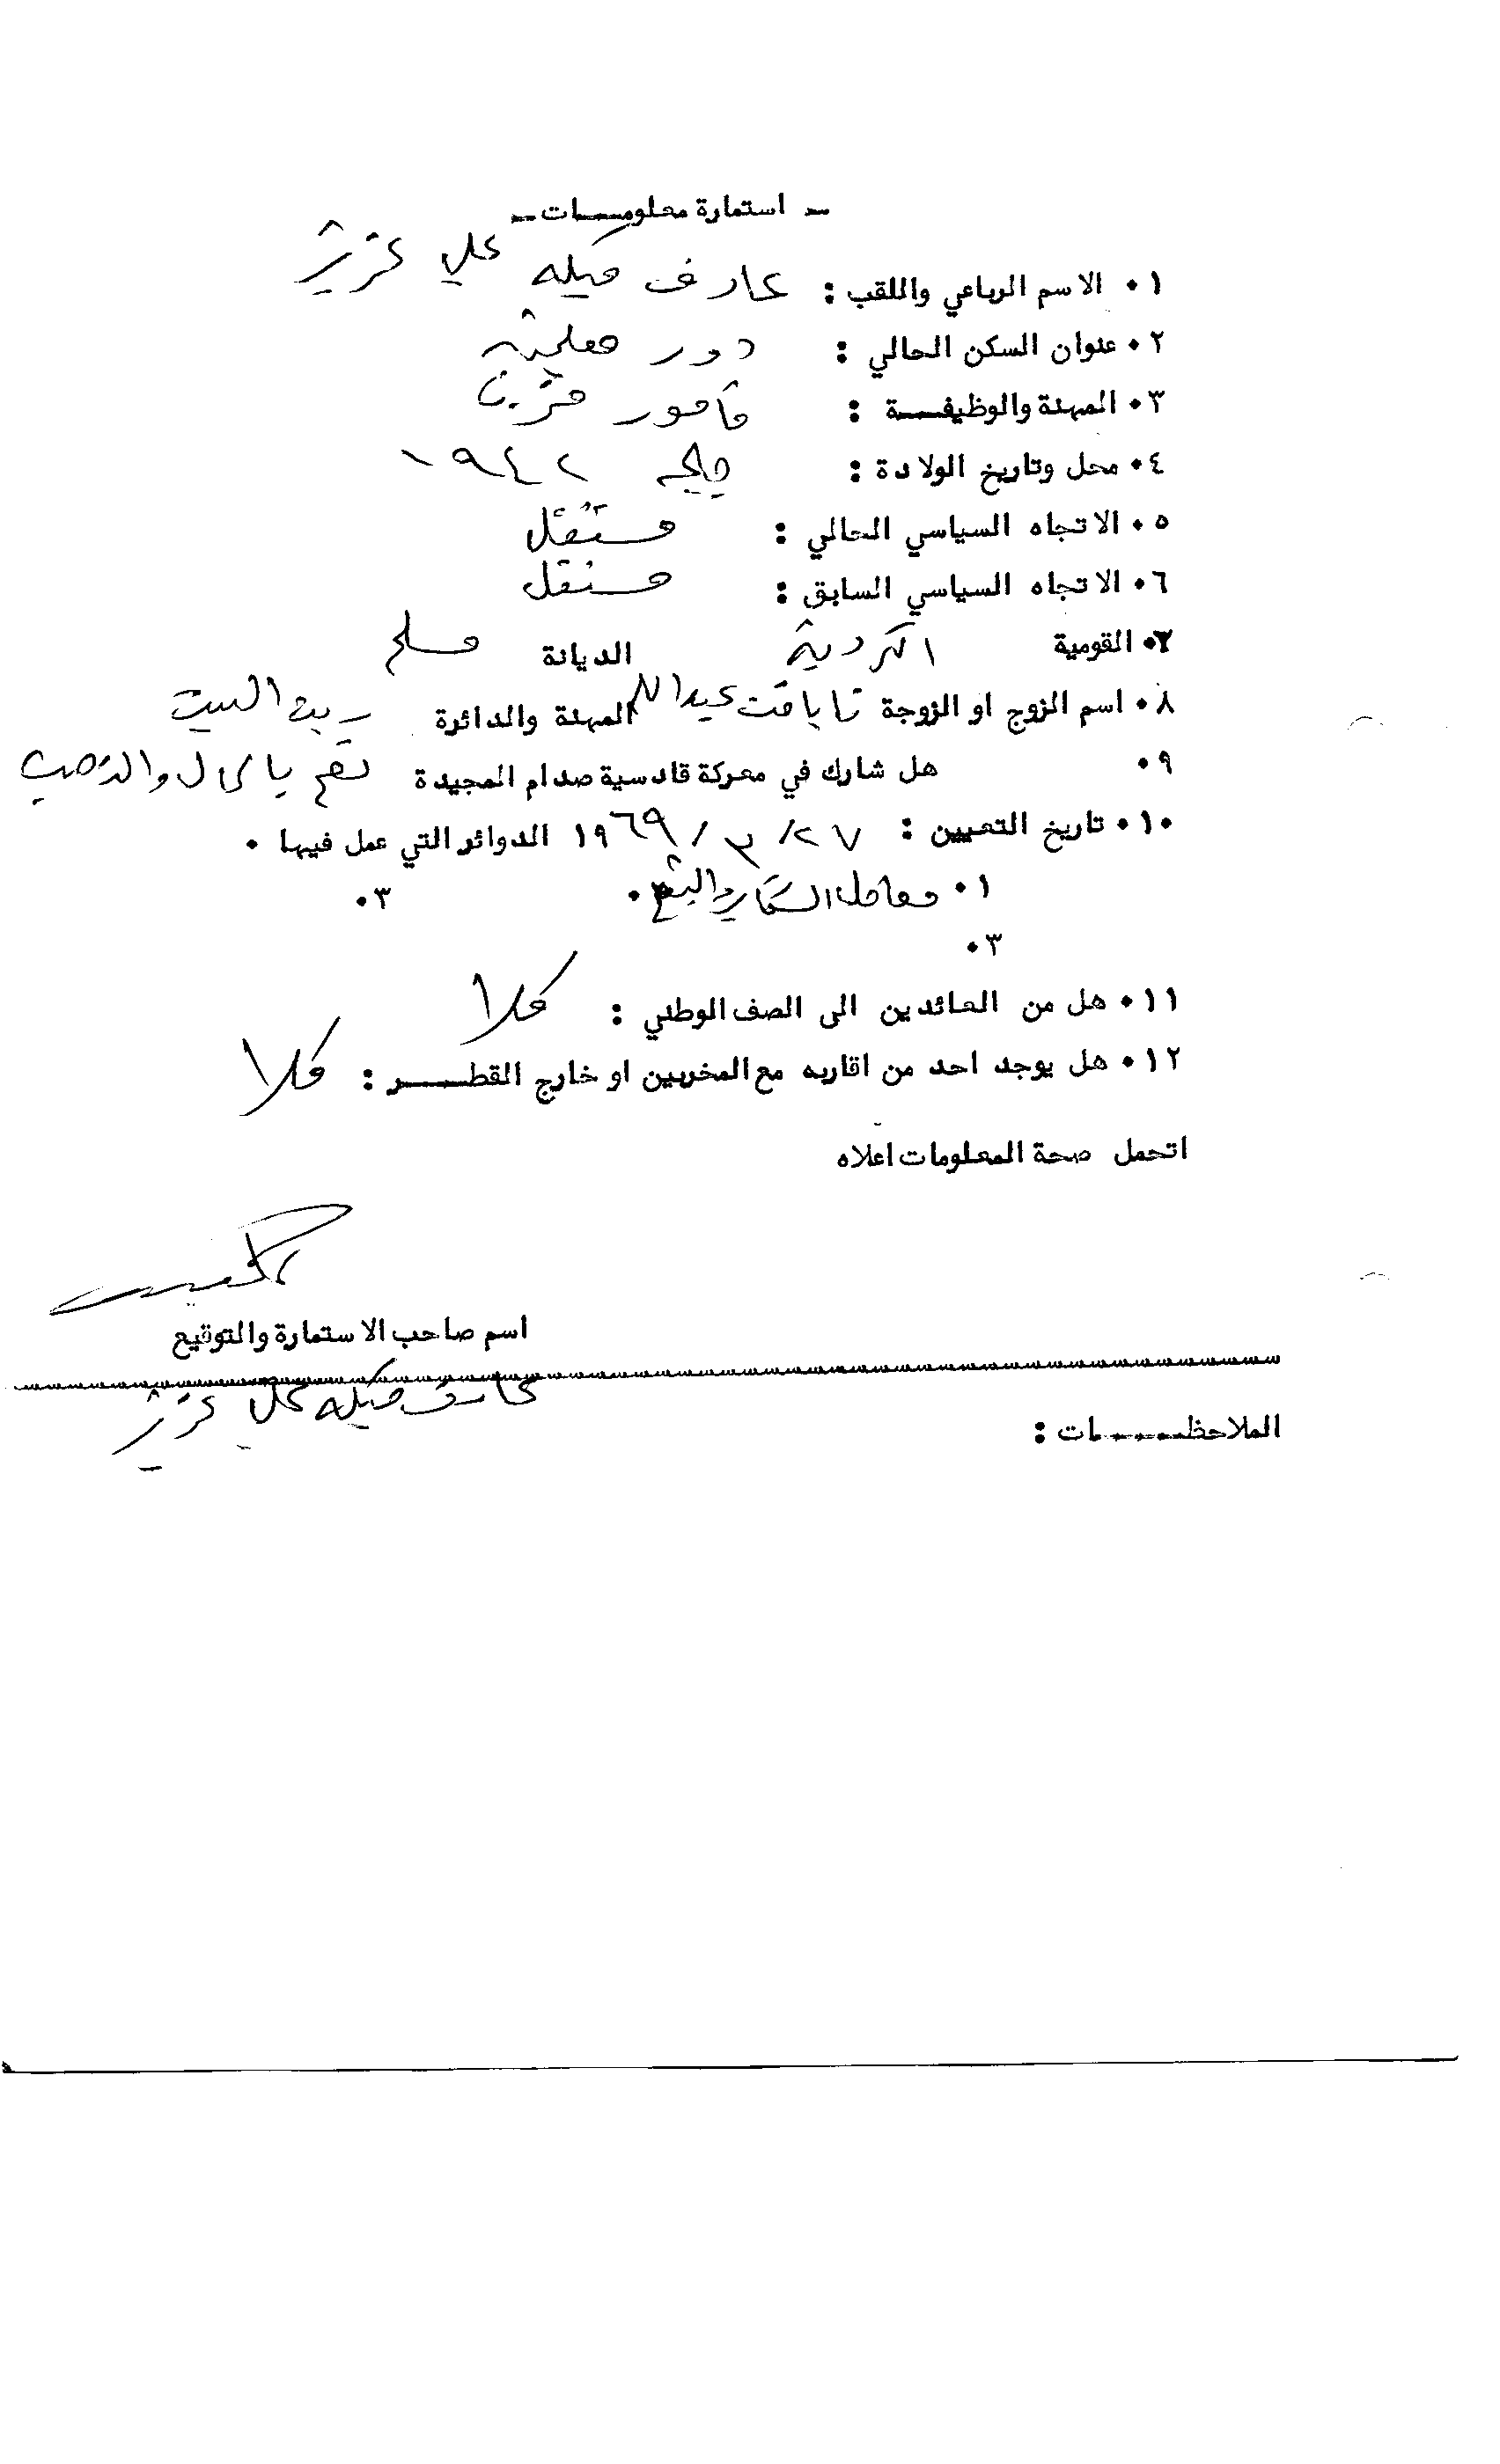 - استمارة معلومـــات -
١٠ الاسم الرباعي واللقب : عارف ميكه علي عزيز
٢٠ عنوان السكن الحالي : دور معلمين
٣٠ المهنة والوظيفـــة : مأمور مخزن
٤٠ محل وتاريخ الولادة : ١٩٤٢
٥٠ الاتجاه السياسي الحالي : مستقل
٦٠ الاتجاه السياسي السابق : مستقل
٧٠ القومية الكردية الديانة مسلم
٨٠ اسم الزوج او الزوجة عبدالله المهنة والدائرة ربة البيت
٩٠ هل شارك في معركة قادسية صدام المجيدة نعم بالمال والذهب
١٠٠ تاريخ التعيين : ٢٧ / ٣ / ١٩٦٩ الدوائر التي عمل فيها ٠
١٠ معامل السكاير والتبغ ٢٠ ٣٠
٣٠
١١٠ هل من العائدين الى الصف الوطني : كلا
١٢٠ هل يوجد احد من اقاربه مع المخربين او خارج القطـــر : كلا
اتحمل صحة المعلومات اعلاه
اسم صاحب الاستمارة والتوقيع
عارف ميكه علي عزيز
الملاحظـــات :